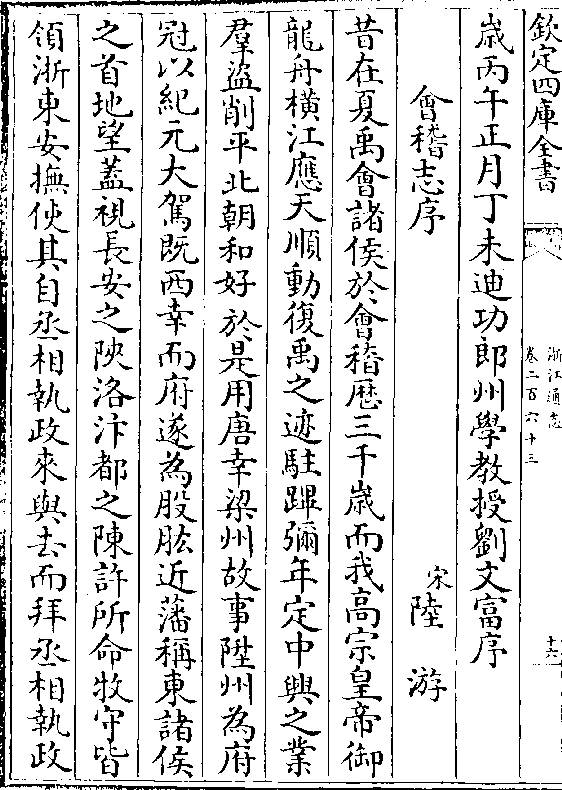 欽定四庫全書
浙江通志
卷二百六十三
十六
歳丙午正月丁未迪功郎州學教授劉文富序
會稽志序
宋陸游
昔在夏禹會諸侯於會稽厯三千歳而我高宗皇帝御
龍舟横江應天順動復禹之迹駐蹕彌年定中興之業
羣盜削平北朝和好於是用唐幸梁州故事陞州為府
冠以紀元大駕既西幸而府遂為股肱近藩稱東諸侯
之首地望蓋視長安之陜洛汴都之陳許所命牧守皆
領浙東安撫使其自丞相執政來與去而拜丞相執政